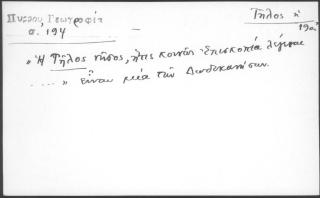 Πύρρου, Γεωγραφία
σ. 194
Τῆλος ἡ
19ος
"Ἡ Τῆλος νῆσος, ἥτις κοινῶς Ἐπισκοπία λέγεται
.... " εἶναι μία τῶν Δωδεκανήσων.